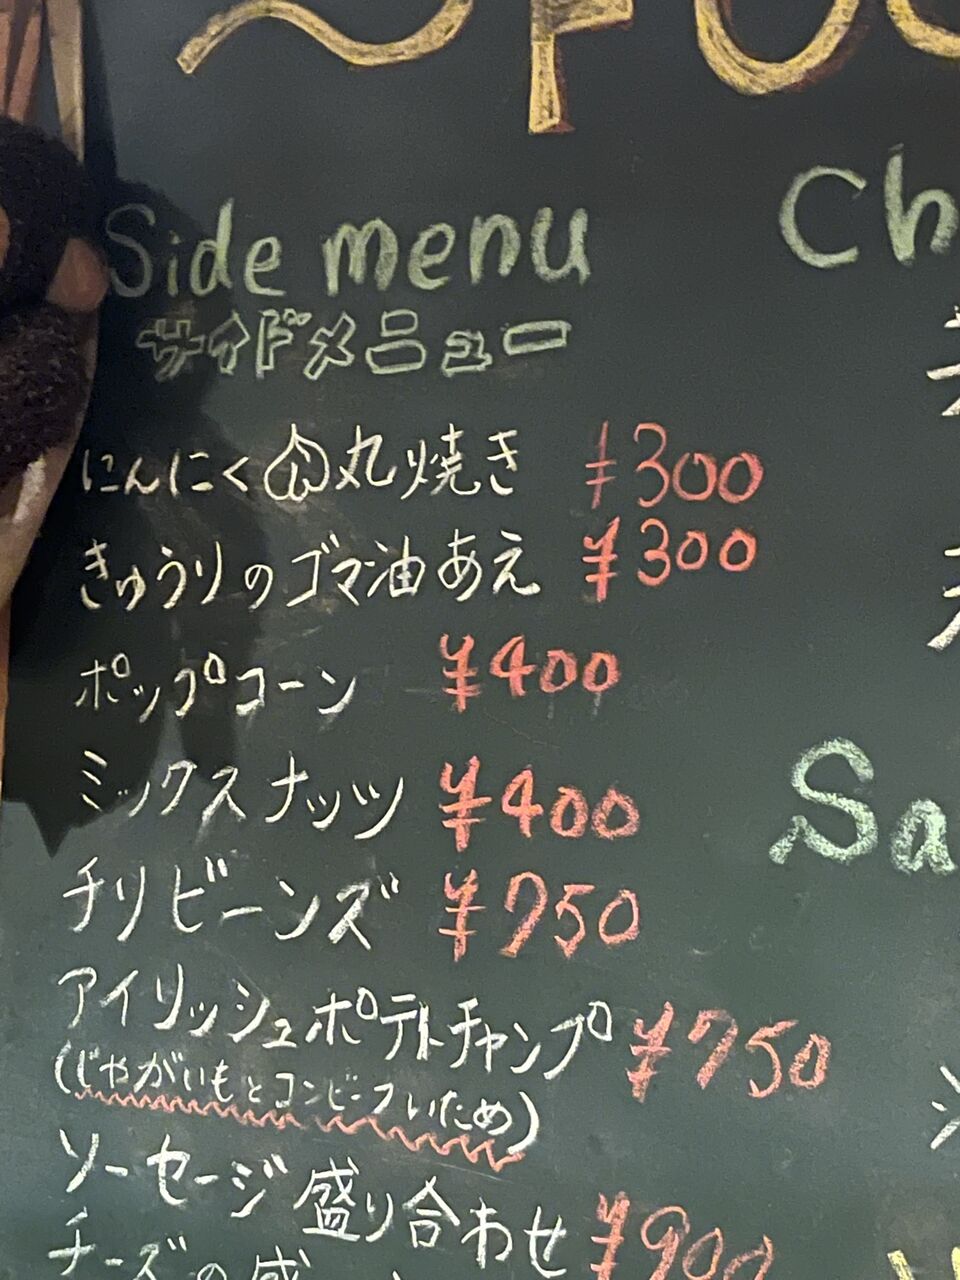 Side menu
サイドメニュー
にんにく丸焼き ¥300
きゅうりのゴマ油あえ ¥300
ポップコーン ¥400
ミックスナッツ ¥400
チリビーンズ ¥750
アイリッシュポテトチャンプ ¥750
(じゃがいもとコンビーフいため)
ソーセージ盛り合わせ ¥900
チーズの盛
Ch
Sa